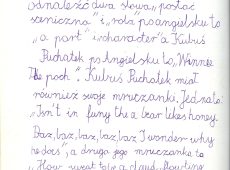 odnaleźć dwa słowa „postać
sceniczna" i „rola" po angielsku to
„a part" i „character" a Kubuś
Puchatek po Angielsku to „Winnie
The pooh". Kubuś Puchatek miał
również swoje mruczanki. Jedna to
„Isn't in funy the a bear likes honey.
Baz, baz, baz, baz, baz I wonder why
he does", a druga jego mruczanka to
„How sweet to be a cloud. Floating